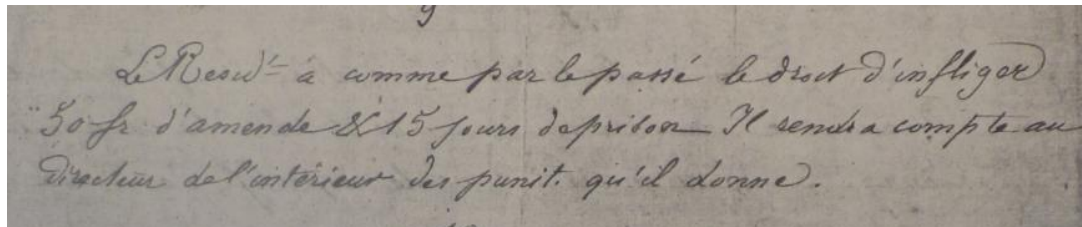 9
Le Resid^t a comme par le passé le droit d'infliger
50 fr d'amende & 15 jours de prison Il rendra compte au
Directeur de l'intérieur des punit. qu'il donne.